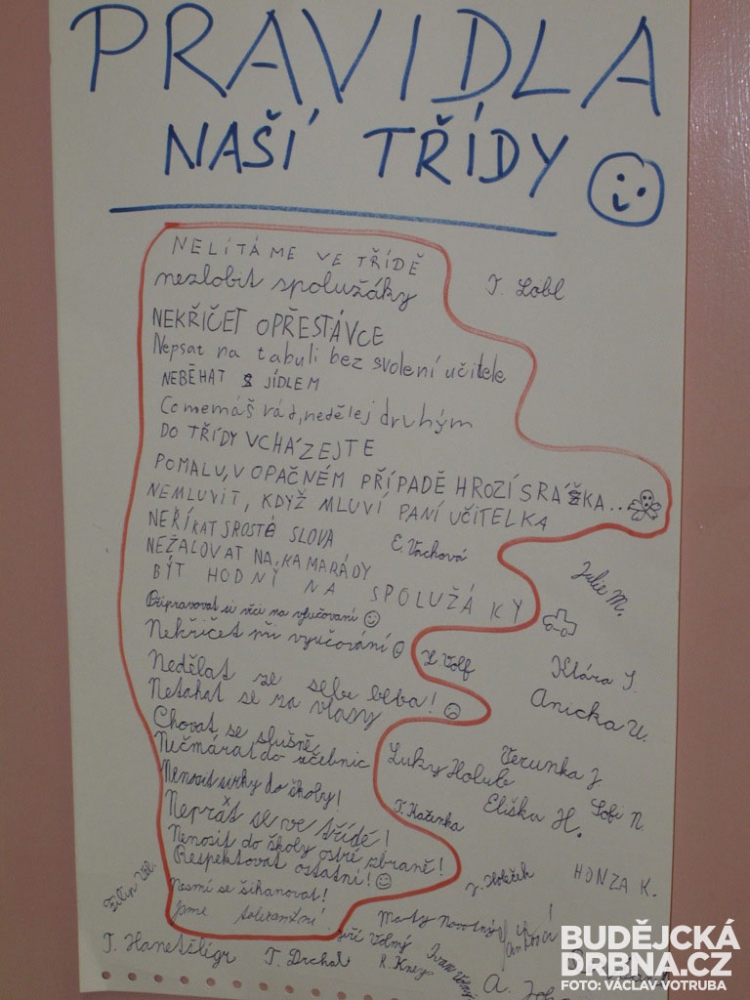 PRAVIDLA
NAŠÍ TŘÍDY
NELÍTÁME VE TŘÍDĚ
nezlobit spolužáky
T. Lobl
NEKŘIČET OPŘESTÁVCE
Nepsat na tabuli bez svolení učitele
NEBĚHAT S JÍDLEM
Co nemáš rád, nedělej druhým
DO TŘÍDY VCHÁZEJTE
POMALU, V OPAČNÉM PŘÍPADĚ HROZÍ SRÁŽKA...
NEMLUVIT, KDYŽ MLUVÍ PANÍ UČITELKA
NEŘÍKAT SPROSTÉ SLOVA
E. Vachová
NEŽALOVAT NA KAMARÁDY
BÝT HODNÝ NA SPOLUŽÁKY
Julie M.
Připravovat si věci na vyučovaní
Nekřičet při vyučování
Volf
Klára J.
Nedělat ze sebe beba!
Netahat se za vlasy
Anička U.
Chovat se slušně
Nečmárat do učebnic
Luky Holub
Verunka J
Nenosit sirky do školy!
Eliška H.
Sofi N.
Neprát se ve třídě!
T. Kačenka
Nenosit do školy ostré zbraně!
Respektovat ostatní!
HONZA K.
Nesmí se šikanovat!
jsme tolerantní
Filip
Matěj Novotný
Jiří Volný
T. Drchal
BUDĚJCKÁ
DRBNA.CZ
FOTO: VÁCLAV VOTRUBA